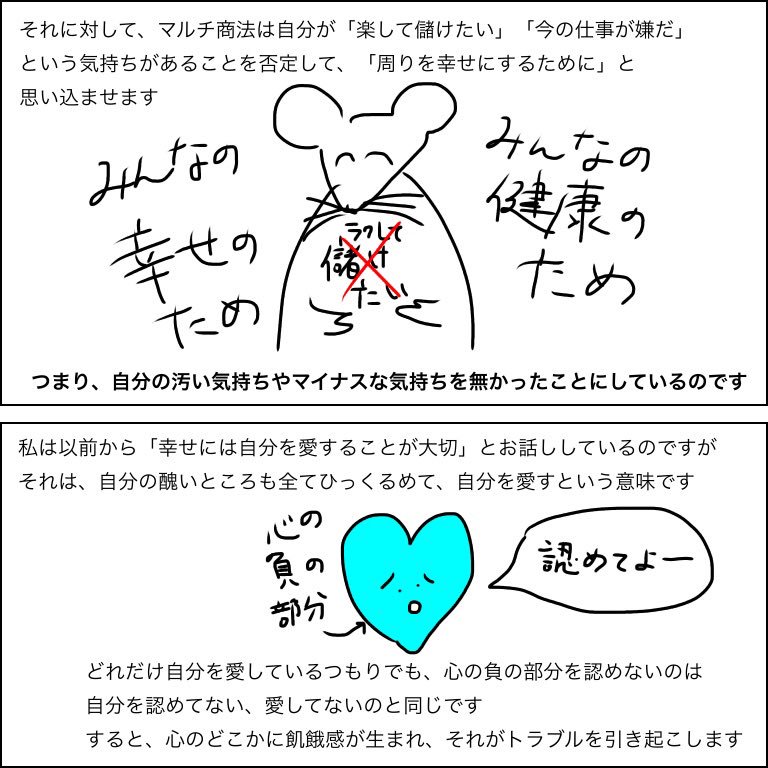 それに対して、マルチ商法は自分が「楽して儲けたい」「今の仕事が嫌だ」
という気持ちがあることを否定して、「周りを幸せにするために」と
思い込ませます
みんなの
幸せの
ため
ラクして
儲け
たい
みんなの
健康の
ため
つまり、自分の汚い気持ちやマイナスな気持ちを無かったことにしているのです
私は以前から「幸せには自分を愛することが大切」とお話ししているのですが
それは、自分の醜いところも全てひっくるめて、自分を愛すという意味です
心の
負の
部分
認めてよー
どれだけ自分を愛しているつもりでも、心の負の部分を認めないのは
自分を認めてない、愛してないのと同じです
すると、心のどこかに飢餓感が生まれ、それがトラブルを引き起こします